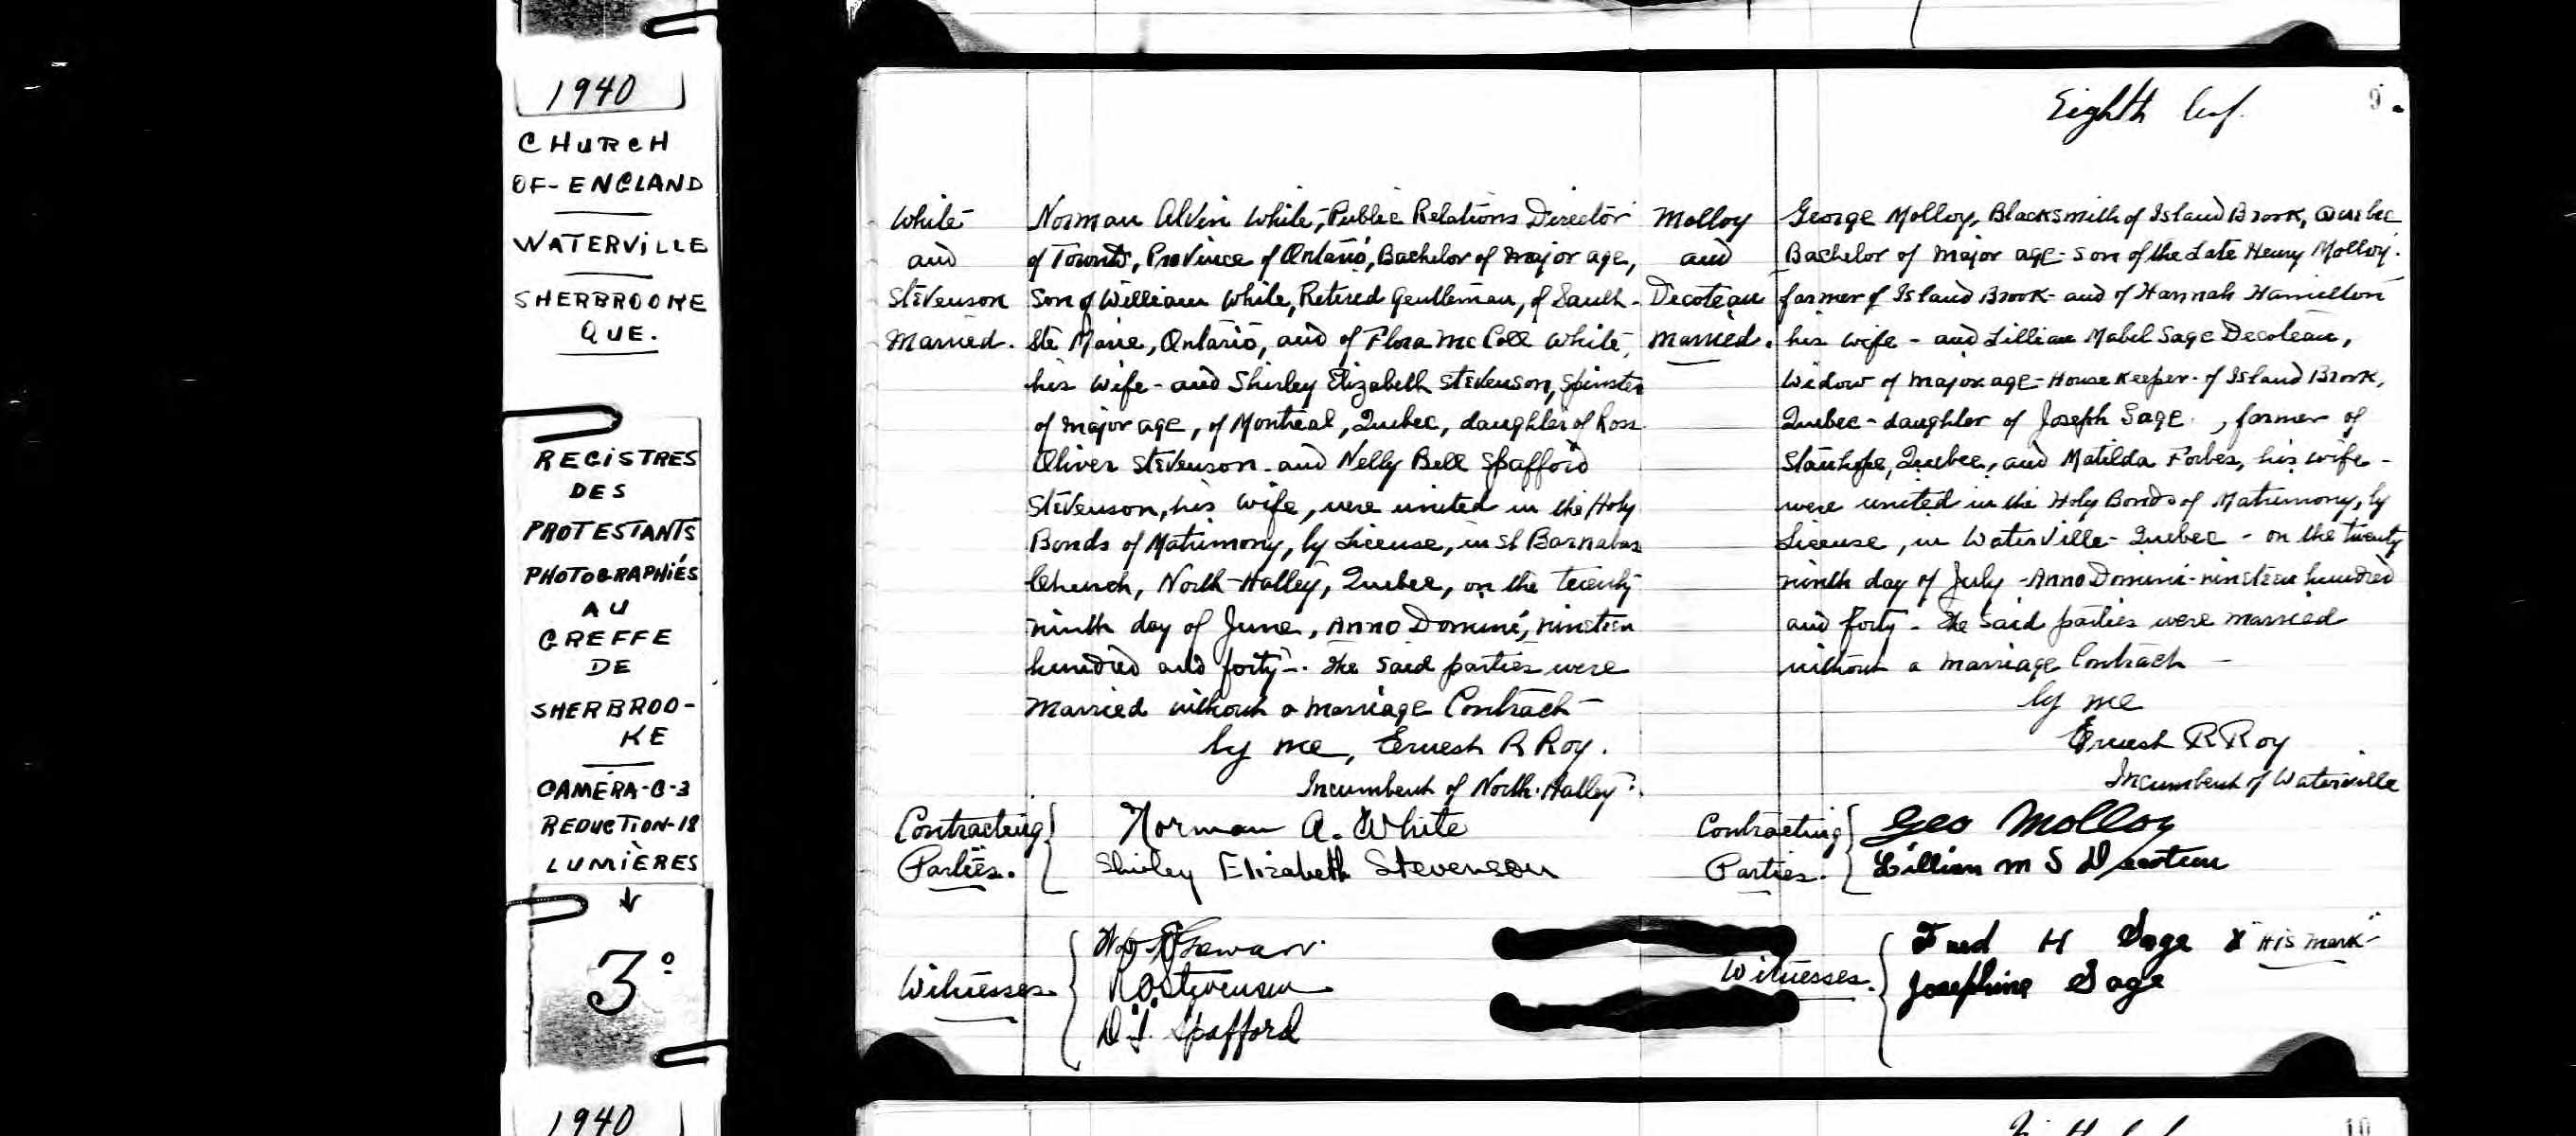 1940
CHURCH
OF-ENGLAND
WATERVILLE
SHERBROOKE
QUE.
REGISTRES
DES
PROTESTANTS
PHOTOGRAPHIÉS
AU
GREFFE
DE
SHERBROO-
KE
CAMÉRA-C-3
REDUCTION-18
LUMIÈRES
3°
1940
Eighth leaf.
9.
White
and
Stevenson
Married.
Norman Alvin White, Public Relations Director
of Toronto, Province of Ontario, Bachelor of major age,
Son of William White, Retired Gentleman, of Sault-
Ste Marie, Ontario, and of Flora McColl White,
his wife - and Shirley Elizabeth Stevenson, Spinster
of major age, of Montreal, Quebec, daughter of Ross
Oliver Stevenson and Nelly Bell Spafford
Stevenson, his wife, were united in the Holy
Bonds of Matrimony, by License, in St Barnabas
Church, North-Hatley, Quebec, on the twenty
ninth day of June, Anno Domini, nineteen
hundred and forty-. The said parties were
Married without a marriage Contract-
by me, Ernest R Roy.
Incumbent of North-Hatley.
Contracting
Parties.
Norman A. White
Shirley Elizabeth Stevenson
Witnesses
R O Stevenson
D. J. Spafford
Molloy
and
Decoteau
married.
George Molloy, Blacksmith of Island Brook, Quebec
Bachelor of major age - son of the Late Henry Molloy.
farmer of Island Brook - and of Hannah Hamilton
his wife - and Lillian Mabel Sage Decoteau,
Widow of major age - House Keeper - of Island Brook,
Quebec - daughter of Joseph Sage, farmer of
Stanhope, Quebec, and Matilda Forbes, his wife -
were united in the Holy Bonds of Matrimony, by
License, in Waterville - Quebec - on the twenty
ninth day of July - Anno Domini - nineteen hundred
and forty - The said parties were married
without a marriage Contract -
by me
Ernest R Roy
Incumbent of Waterville
Contracting
Parties.
Geo Molloy
Lillian M S Decoteau
Witnesses.
Fred H Sage X "His mark"
Josephine Sage
10